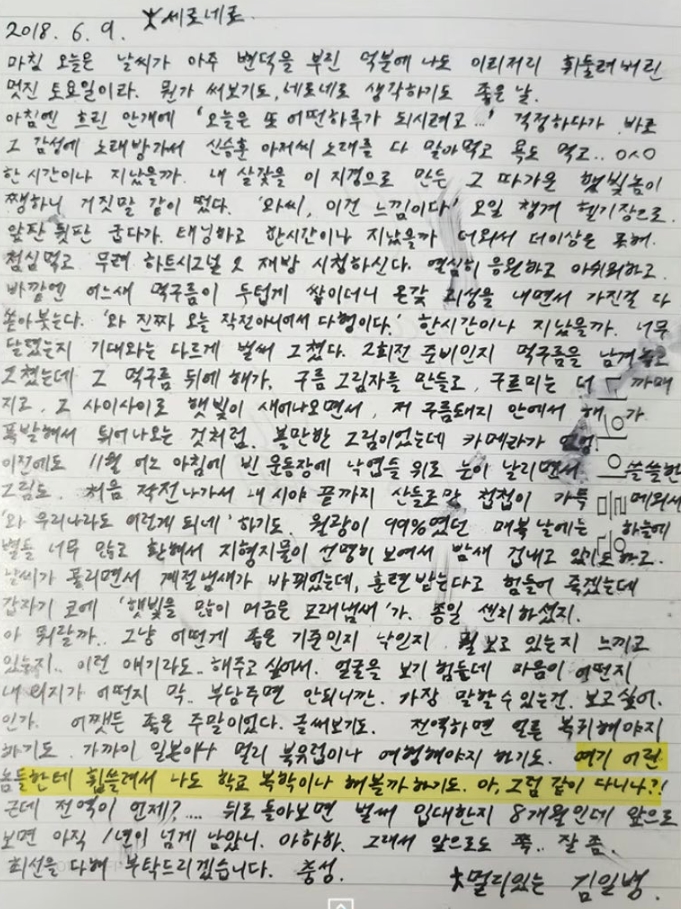 2018. 6. 9. 세로네로
마침 오늘은 날씨가 아주 변덕을 부린 덕분에 나도 이리저리 휘둘려버린
멋진 토요일이라. 뭔가 써보기도, 네로네로 생각하기도 좋은 날.
아침엔 흐린 안개에 '오늘은 또 어떤하루가 되시려고...' 걱정하다가 바로
그 감성에 노래방가서 신승훈 아저씨 노래를 다 말아먹고 욕도 먹고.. ㅇㅅㅇ
한시간이나 지났을까. 내 살갗을 이 지경으로 만든 그 따가운 햇빛놈이
쨍하니 거짓말 같이 떴다. '와씨, 이건 느낌이다' 오일 챙겨 헬기장으로.
앞판 뒷판 굽다가. 태닝하고 한시간이나 지났을까 더워서 더이상은 못해.
점심먹고 무려 하트시그널2 재방 시청하신다. 열심히 응원하고 아쉬워하고.
바깥엔 어느새 먹구름이 두텁게 쌓이더니 온갖 괴성을 내면서 가진걸 다
쏟아붓는다. '와 진짜 오늘 작전아니어서 다행이다.' 한시간이나 지났을까. 너무
달렸는지 기대와는 다르게 벌써 그쳤다. 2회전 준비인지 먹구름을 남겨놓고
그쳤는데 그 먹구름 뒤에 해가, 구름 그림자를 만들고, 구르미는 더 까매
지고, 그 사이사이로 햇빛이 새어나오면서, 저 구름돼지 안에서 해가
폭발해서 튀어나오는 것처럼. 볼만한 그림이었는데 카메라가
이전에도 11월 어느 아침에 빈 운동장에 낙엽들 위로 눈이 날리면서 쓸쓸한
그림도. 처음 작전나가서 내 시야 끝까지 산들로만 첩첩이 가득 메워서
'와 우리나라도 이렇게 되네' 하기도. 월광이 99%였던 매복날에는 하늘에
별들 너무 많고 환해서 지형지물이 선명히 보여서 밤새 겁내고 있기도하고.
날씨가 풀리면서 계절냄새가 바뀌었는데, 훈련받는다고 힘들어 죽겠는데
갑자기 코에 '햇빛을 많이 머금은 모래냄새'가. 종일 센치하셨지.
아 뭐랄까.. 그냥 어떻게 좋은 기준인지 낙인지 뭘 보고 있는지 느끼고
있는지.. 이런 얘기라도.. 해주고 싶어서. 얼굴을 보기 힘든데 마음이 어떤지
내 의지가 어떤지 막.. 부담주면 안되니깐. 가장 말할 수 있는건. 보고싶어.
인가. 어쨋든 좋은 주말이었다. 글써보기도. 전역하면 얼른 복귀해야지
하기도. 가까이 일본이나 멀리 북유럽이나 여행해야지 하기도. 여기 어린
놈들한테 휩쓸려서 나도 학교 복학이나 해볼까하기도. 아, 그럼 같이 다니나?!
근데 전역이 언제?.... 뒤로 돌아보면 벌써 입대한지 8개월인데 앞으로
보면 아직 1년이 넘게 남았니. 아하하. 그래서 앞으로도 쭉.. 잘 좀.
최선을 다해 부탁드리겠습니다. 충성.
멀리있는 김일병.